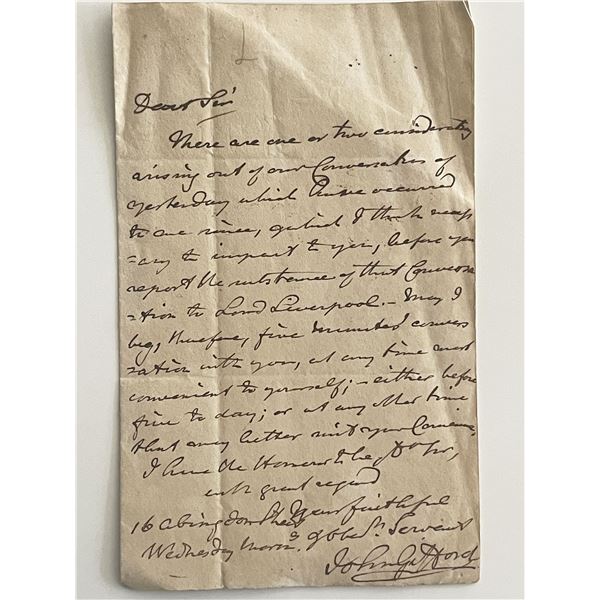 Dear Sir
There are one or two considerations
arising out of our Conversation of
yesterday which have occurred
to me since, which I think necess
=ary to impart to you, before you
report the substance of that Conversa
=tion to Lord Liverpool. – May I
beg, therefore, five minutes' convers
=ation with you, at any time most
convenient to yourself; – either before
five to day; or at any other time
that may better suit your Convenience
I have the Honour to be, Dr Sir,
with great regard
16 Abingdon Street Your faithful
Wednesday Morng. & obedt. Servant
John Gifford